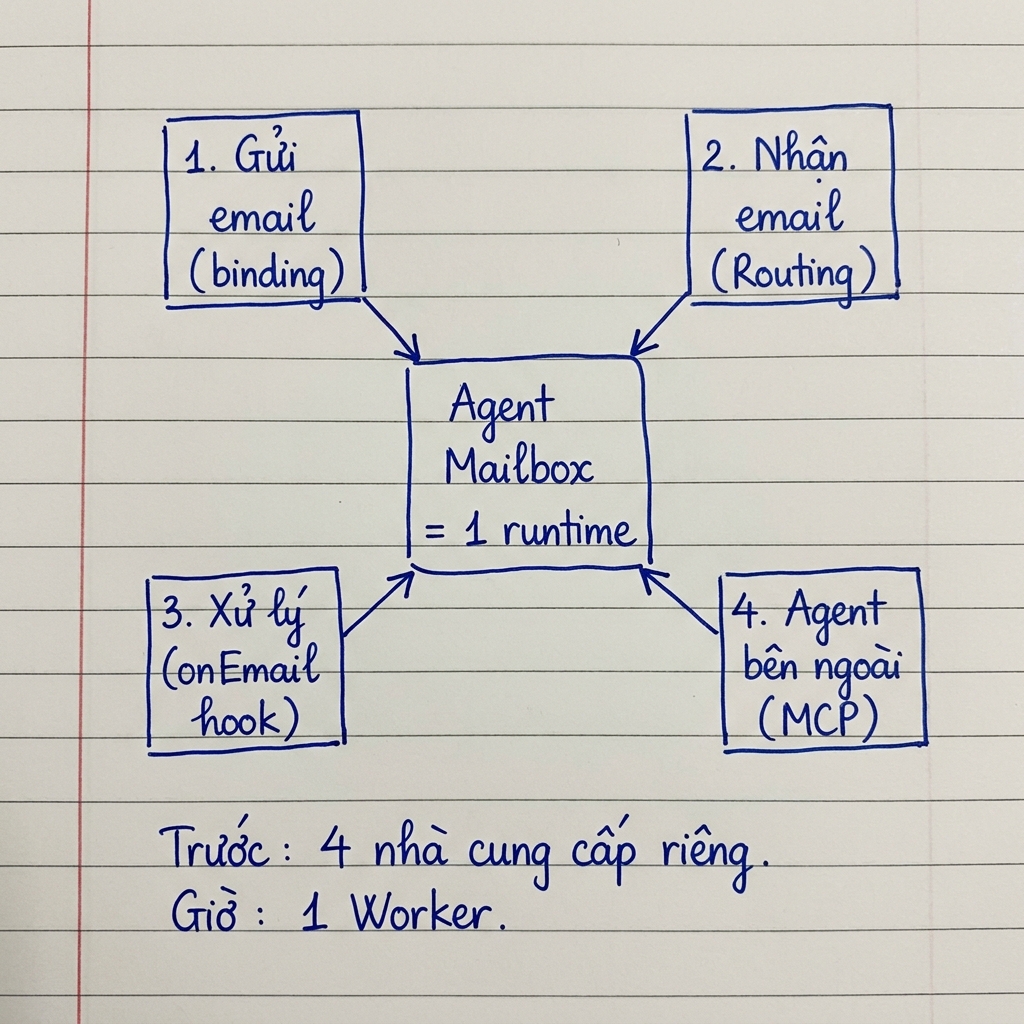 1. Gửi
email
(binding)
2. Nhận
email
(Routing)
Agent
Mailbox
= 1 runtime
3. Xử lý
(onEmail
hook)
4. Agent
bên ngoài
(MCP)
Trước: 4 nhà cung cấp riêng.
Giờ: 1 Worker.